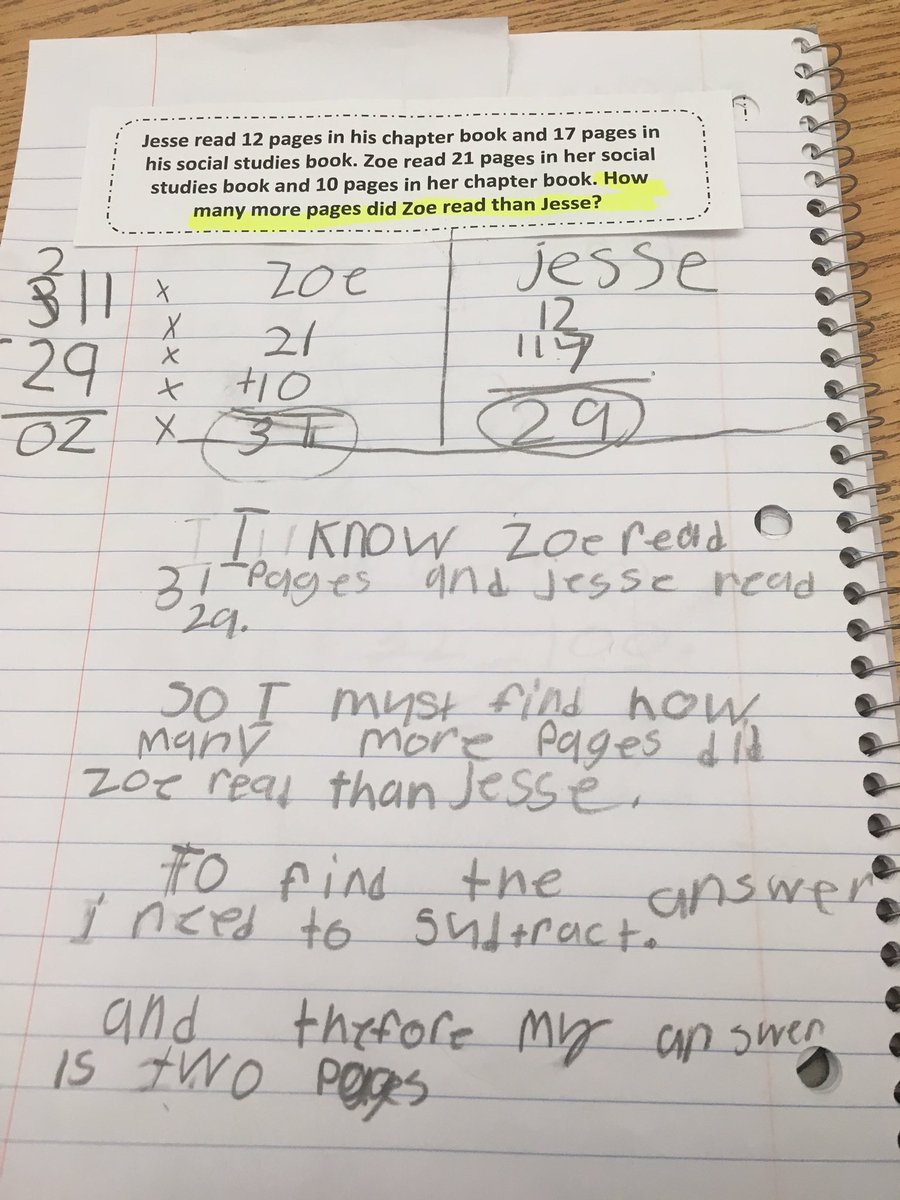 Jesse read 12 pages in his chapter book and 17 pages in
his social studies book. Zoe read 21 pages in her social
studies book and 10 pages in her chapter book. How
many more pages did Zoe read than Jesse?
2
311
-29
02
x
x
x
x
x
Zoe
21
+10
31
jesse
12
29
I know Zoe read
31 pages and jesse read
29.
So I must find how
many more pages did
Zoe read than Jesse.
To find the answer
i need to subtract.
and thefore my answer
is two pages